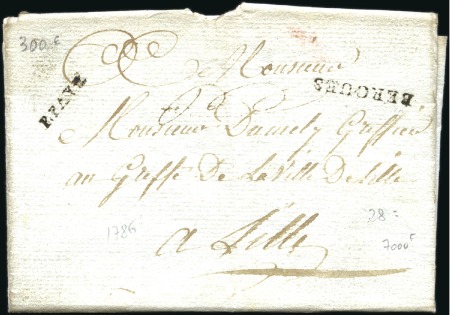 300 €
de Monsieur
P.PAYÉ
BERGUES
Monsieur Greffier
au Greffe De la Ville De Lille
28 =
1786
7000
a Lille